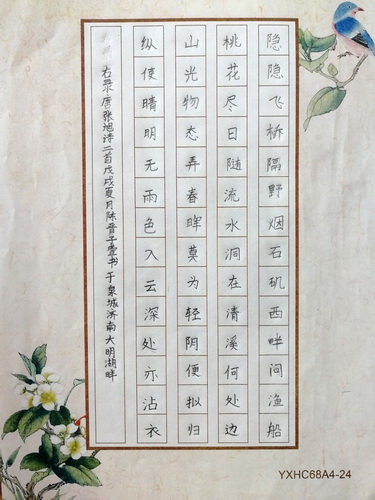 隐隐飞桥隔野烟石矶西畔问渔船
桃花尽日随流水洞在清溪何处边
山光物态弄春晖莫为轻阴便拟归
纵使晴明无雨色入云深处亦沾衣
右录唐张旭诗二首戊戌夏月陈晋子壹书于泉城济南大明湖畔
YXHC68A4-24